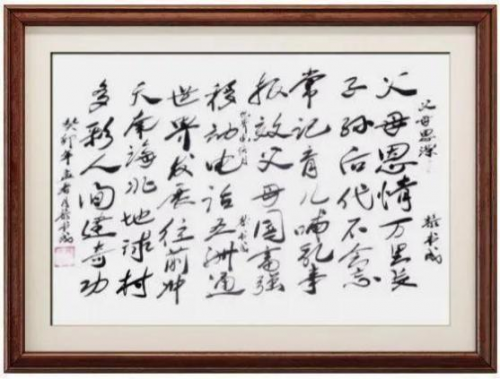 父母恩深
父母恩情万里长
子孙后代不忘
常记育儿哺乳事
报效父母国富强
移动电话五洲通
世界发展往前冲
天南海北地球村
多彩人间建奇功
癸卯年孟春月